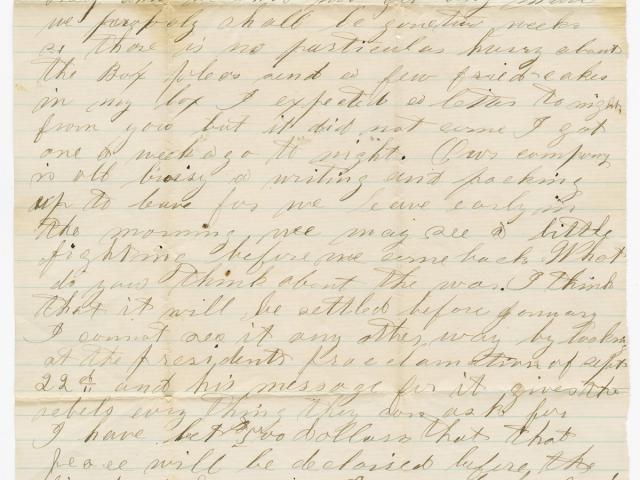 we probaly shall be gone two weeks
so there is no particular hurry about
the Box pleas send a few fried cakes
in my box I expected a letter to night
from you but it did not come I got
one a week ago to night. Our company
is all buisy a writing and packing
up to leave for we leave early in
the morning wee may see a little
fighting before we come back What
do you think about the war. I think
that it will be settled before January
I cannot see it any other way by looking
at the presidents proclamation of sept
22nd and his message for it gives the
rebels evry thing they can ask for
I have bet $500 dollars that that
peace will be declaired before the